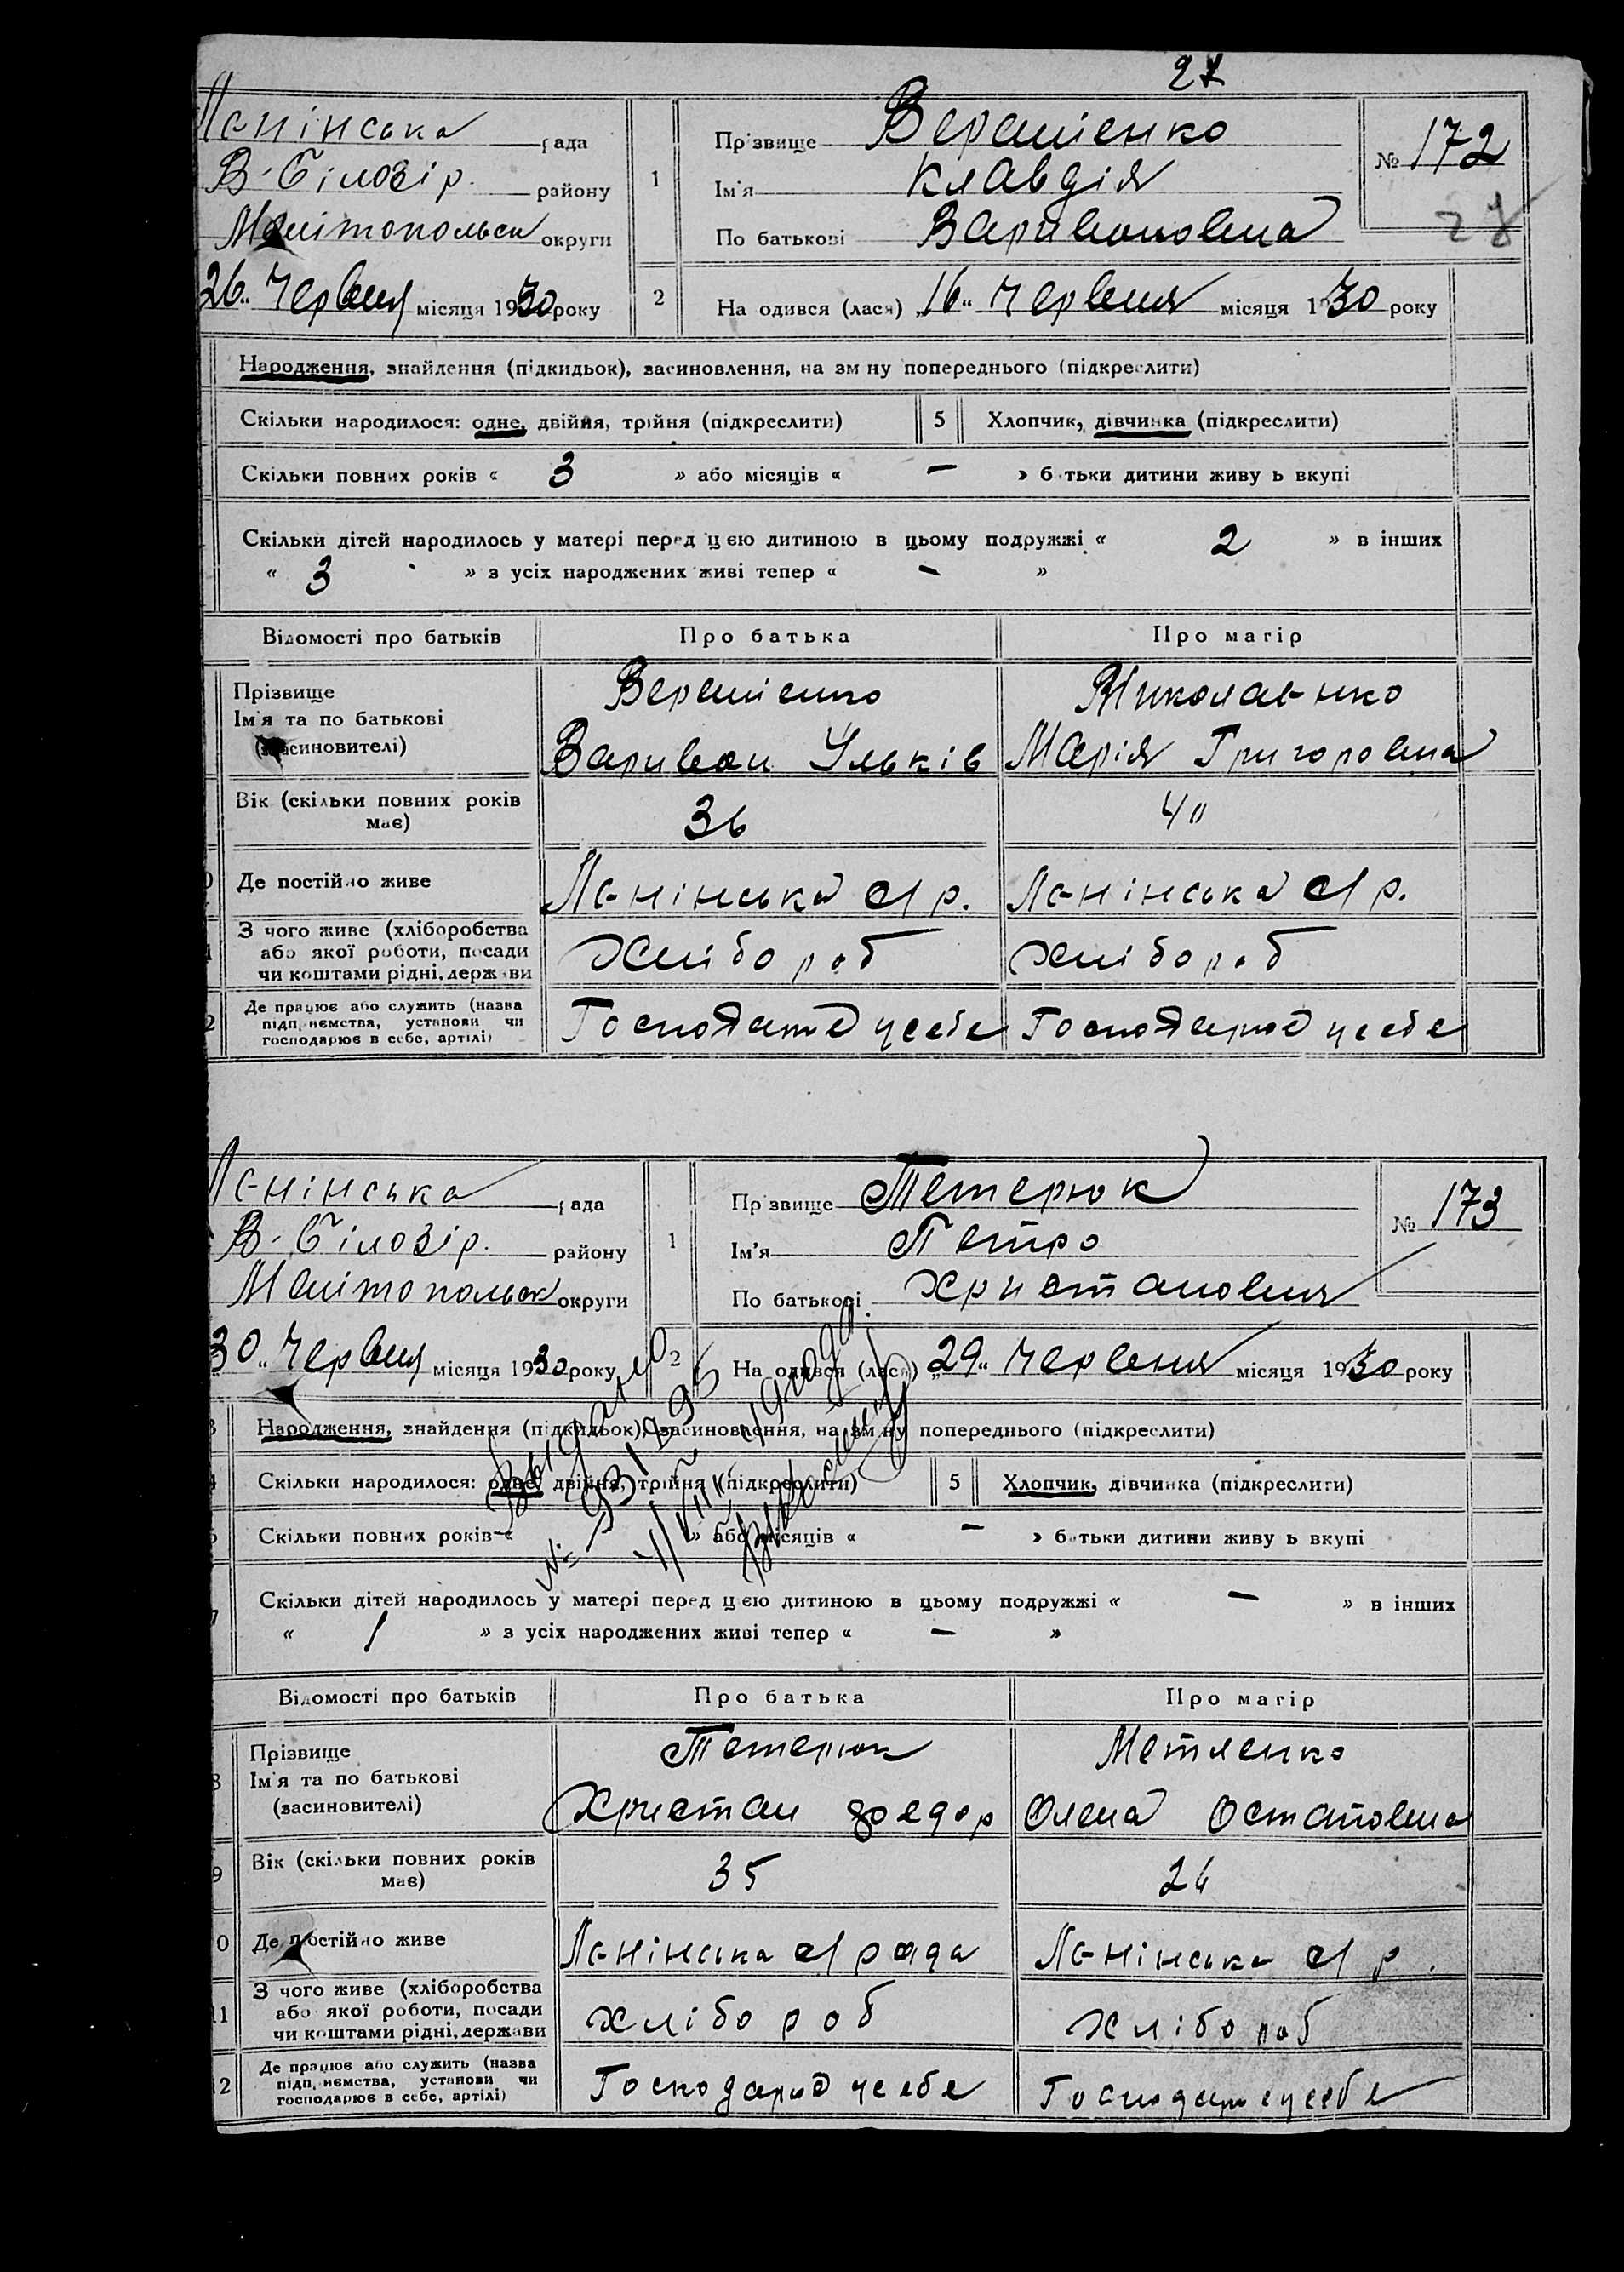 27
Ленінська рада
В-Білозір. району
Мелітопольськ округи
26 „ Червня місяця 1930 року
1 Прізвище Верешіенко
Ім'я Клавдія
По батькові Варивоновна
№ 172
27
2 На одився (лася) „16„ Червня місяця 1930 року
Народження, знайдення (підкидьок), засиновлення, на зм ну попереднього (підкреслити)
Скільки народилося: одне, двійня, трійня (підкреслити) 5 Хлопчик, дівчинка (підкреслити)
Скільки повних років « 3 » або місяців « — » батьки дитини живу ь вкупі
Скільки дітей народилось у матері перед цією дитиною в цьому подружжі « 2 » в інших
« 3 » з усіх народжених живі тепер « — »
Відомості про батьків Про батька Про матір
Прізвище Верешіенко Миколаенко
Ім'я та по батькові
(засиновителі) Варивон Ульків Марія Григоровна
Вік (скільки повних років має) 36 40
Де постійно живе Ленінська с/р. Ленінська с/р.
З чого живе (хліборобства
або якої роботи, посади Хлібороб хлібороб
чи коштами рідні, держави
Де працює або служить (назва
підп, иємства, установи чи Господарює у себе Господарює у себе
господарює в себе, артілі)
Ленінська рада
В-Білозір. району
Мелітопольськ округи
30„ Червня місяця 1930 року
1 Прізвище Тетерюк
Ім'я Петро
По батькові Христановия
№ 173
2 На одився (лася) „29„ Червеня місяця 1930 року
Выдано
3 Народження, знайдення (підкидьок), засиновлення, на зм ну попереднього (підкреслити)
4 Скільки народилося: одне, двійня, трійня (підкреслити) 5 Хлопчик, дівчинка (підкреслити)
6 Скільки повних років « » або місяців « — » батьки дитини живу ь вкупі
7 Скільки дітей народилось у матері перед цією дитиною в цьому подружжі « — » в інших
« 1 » з усіх народжених живі тепер « — »
Відомості про батьків Про батька Про матір
8 Прізвище Тетерюк Метленко
Ім'я та по батькові
(засиновителі) Христан Федор Олена Остаповна
9 Вік (скільки повних років має) 35 26
10 Де постійно живе Ленінська с/рада Ленінська с/р.
З чого живе (хліборобства
11 або якої роботи, посади хлібороб хлібороб
чи коштами рідні, держави
Де працює або служить (назва
12 підп, иємства, установи чи Господарює у себе Господарює у себе
господарює в себе, артілі)